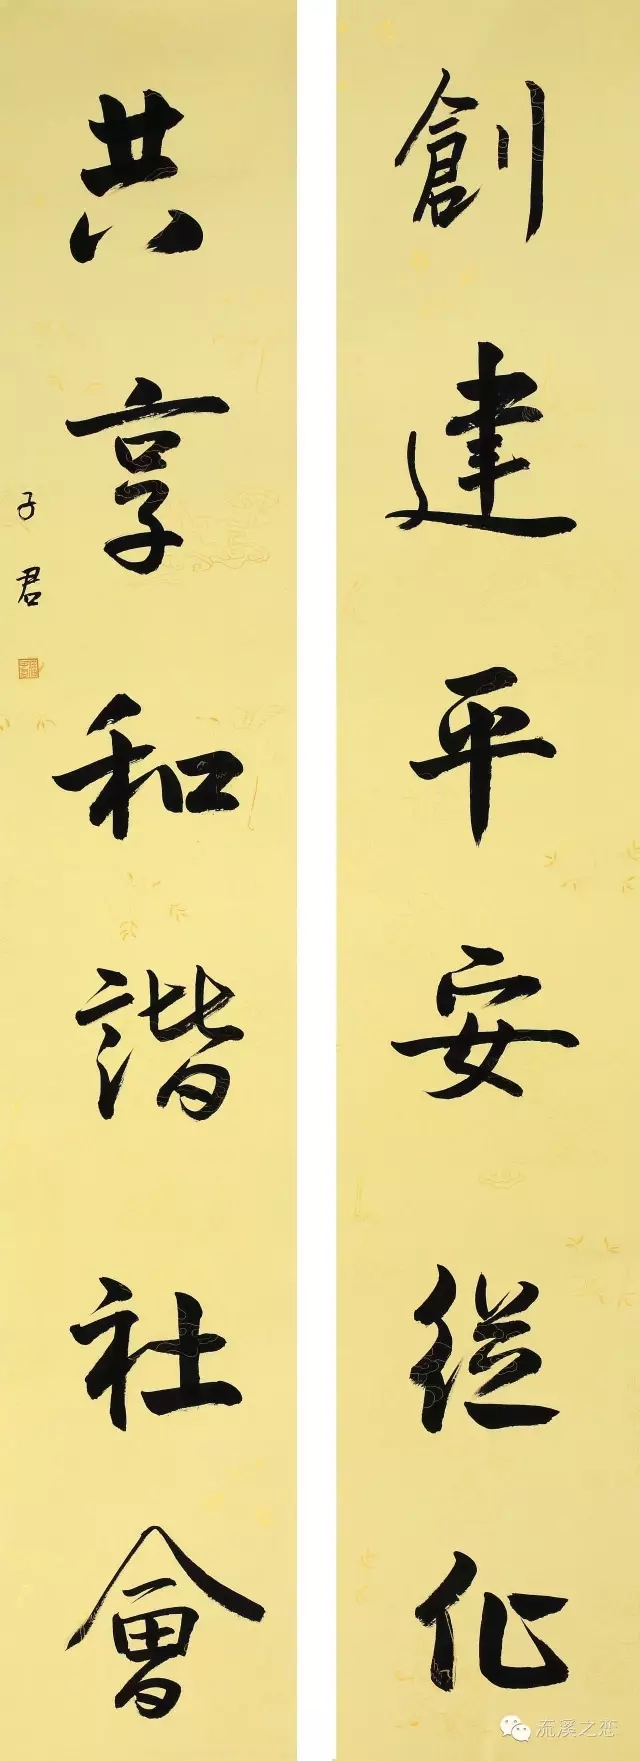 創建平安從化
共享和諧社會
子君
流溪之恋